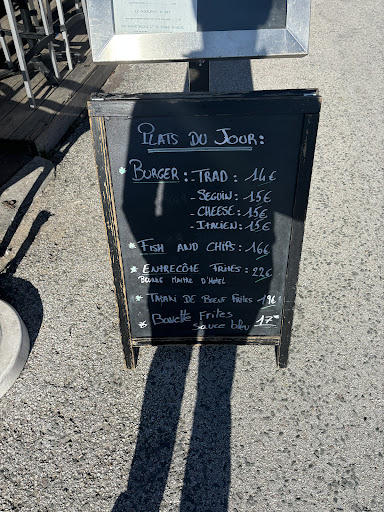 PLATS DU JOUR:
* BURGER: TRAD: 14€
- SEGUIN: 15€
- CHEESE: 15€
- ITALIEN: 15€
* FISH AND CHIPS: 16€
* ENTRECÔTE FRITES: 22€
BEURRE MAITRE D'HOTEL
* TATAKI DE BOEUF FRITES 19€
* Bavette Frites
sauce bleu 17€